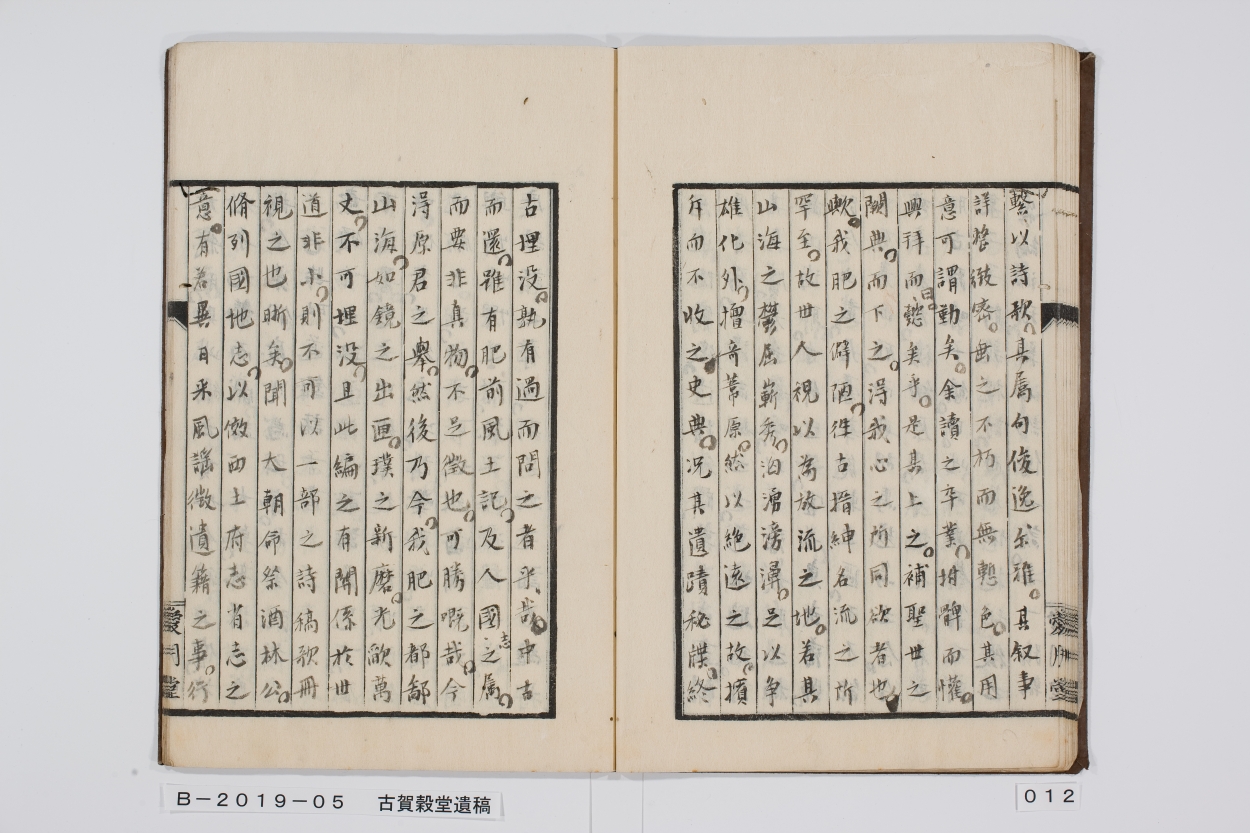 繫以詩歌其属句俊逸尒雅其叙事
詳悉緻密無之不朽而無慙色其用
意可謂動矣余讀之卒業拊髀而懽
興拜而懿曰矣乎是其上之補聖世之
闕典而下之淂我心之所同欲者也
歟我肥之僻陋徃古搢紳名流之所
罕至故世人視以為放流之地若其
山海之欝屈嶄秀汹湧滂湃足以争
雄化外擅奇葦原然以絶遠之故擯
斥而不收之史典况其遺蹟秘牒終
古埋没孰有過而問之者乎哉中古
而還雖有肥前風土記及人國志之属
而要非真物不足徴也可勝嘅哉今
淂原君之舉然後乃今我肥之都鄙
山海如鏡之出匣璞之新磨光歐萬
丈不可埋没且此編之有関係於世
道非小則不可以一部之詩稿歌冊
視之也晰矣聞大朝命祭酒林公
脩列國地志以倣西土府志省志之
意有若異日采風謡徴遺籍之事行
愛月堂
B－2019－05　古賀穀堂遺稿
012